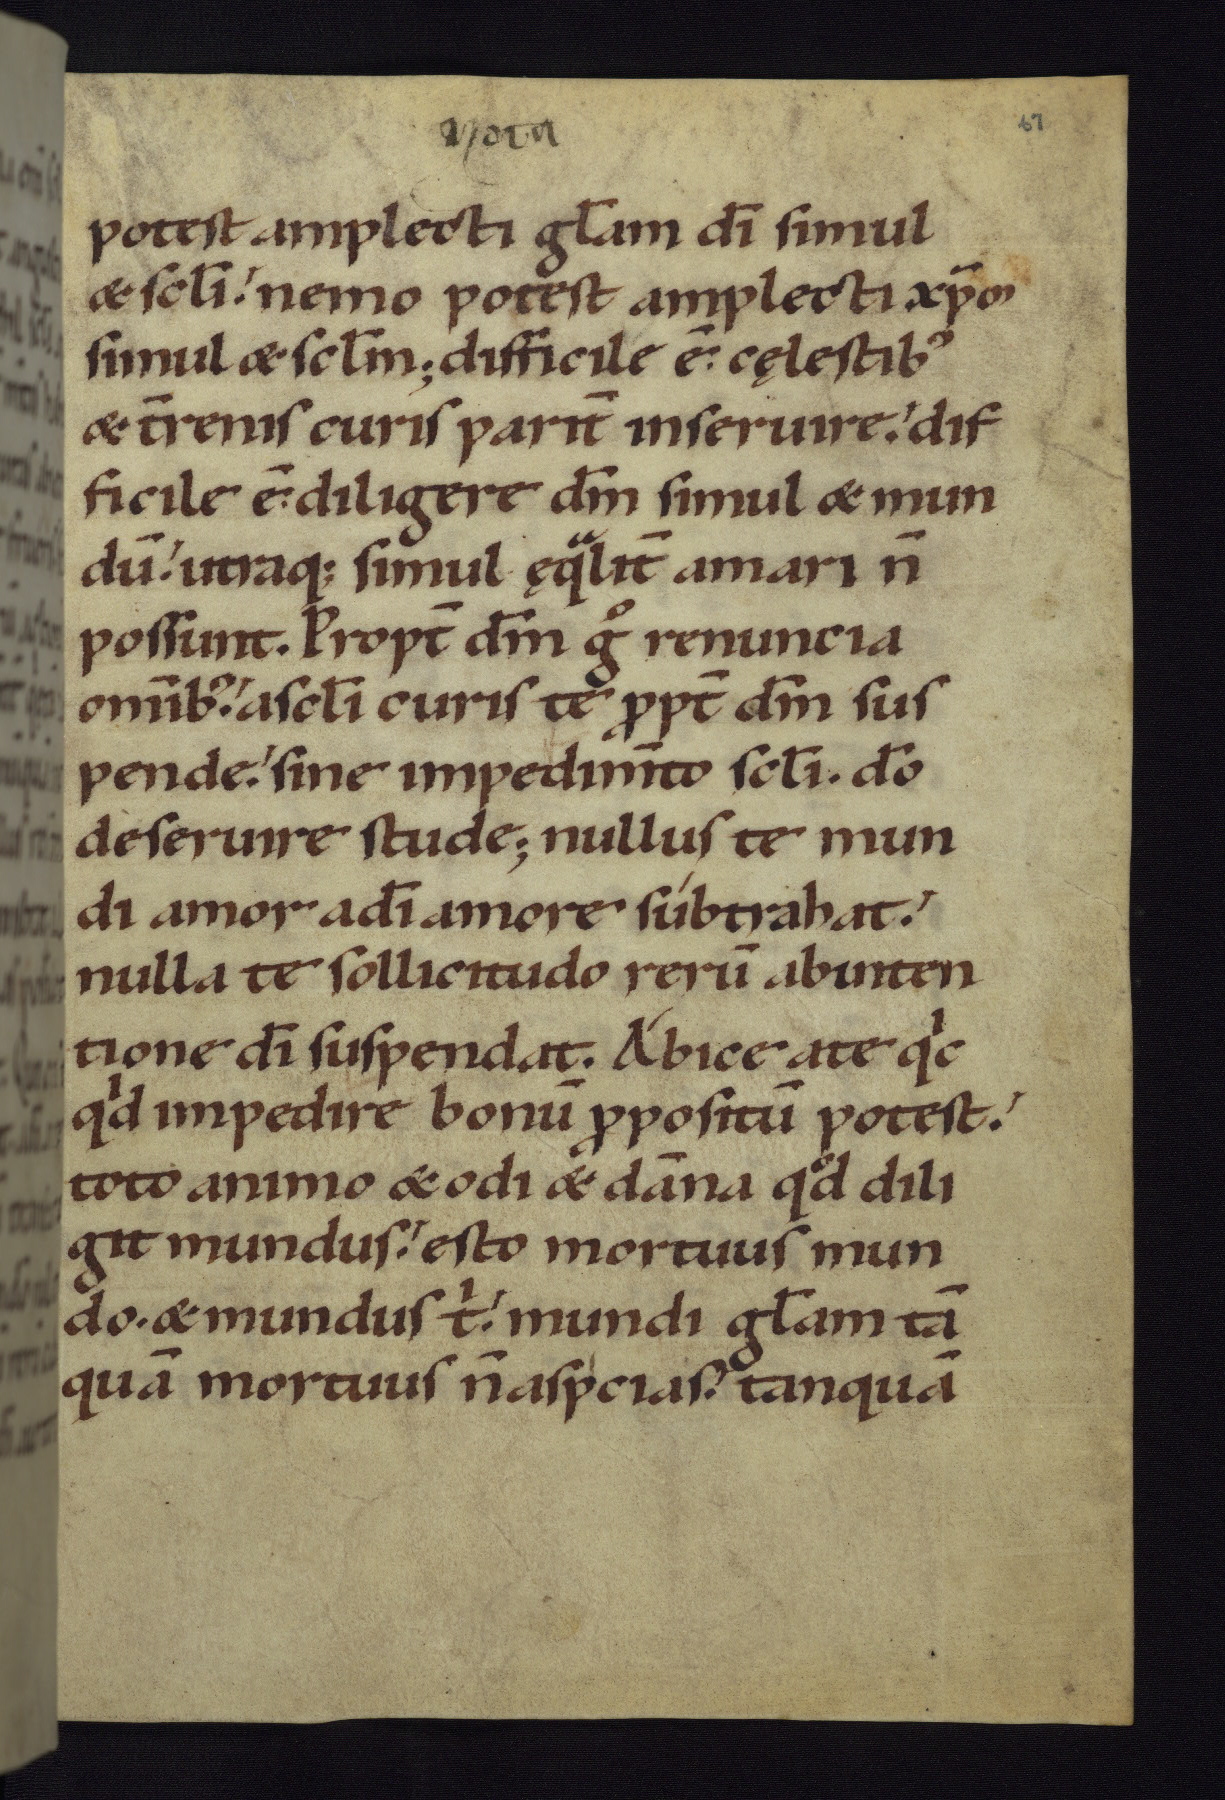 Nota
67
potest amplecti gl̄am dī simul
& sc̄li. nemo potest amplecti xp̄m
simul & sc̄lm; difficile ē. cęlestib᾽
& t̄renis curis parit̄ inseruire. dif
ficile ē. diligere dm̄ simul & mun
dū. utraq; simul ęqͣlit̄ amari n̄
possunt. Propt̄ dm̄ gͦ renuncia
omīb᾽. ascl̄i curis te ꝓpt̄ dm̄ sus
pende. sine impedim̄to scl̄i. dō
deseruire stude; nullus te mun
di amor adī amore subtrahat.
nulla te sollicitudo rerū abinten
tione dī suspendat. Abice ate qͥc
qͥd impedire bonū ꝓpositū potest.
toto animo & odi & dāna qͦd dili
git mundus. esto mortuus mun
do. & mundus tͥ. mundi gl̄am tā
quā mortuus n̄ aspicias. tanquā